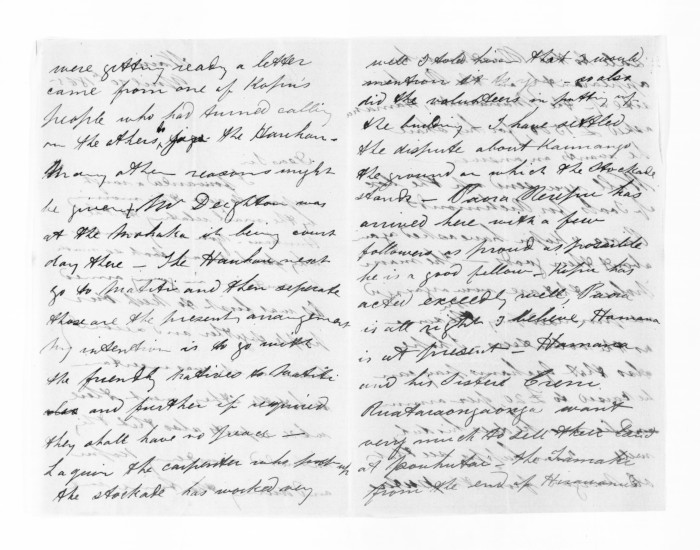 were getting ready a letter
came from one of Kopu's
people who had turned calling
on the others to join the Hauhau -
Many other reasons might
be given, Mr Deighton was
at the Mohaka it being court
day there - The Hauhau next
go to Matiti and then seperate
those are the present arrangement
my intention is to go with
the friendly natives to Matiti
and further if required
they shall have no peace -
the carpenter who put up
the stockade has worked very
well I told him that I would
mention it - so also
did the volunteers in putting up
the building. I have settled
the dispute about
the ground on which the Stockade
stands - Paora Rerepu has
arrived here with a few
followers as proud as possible
he is a good fellow - Kopu has
acted exceedly well, Paora
is all right I believe, Hamana
is at present - Hamana
and his Sisters
want
very much to sell their Land
at - the
from the end of